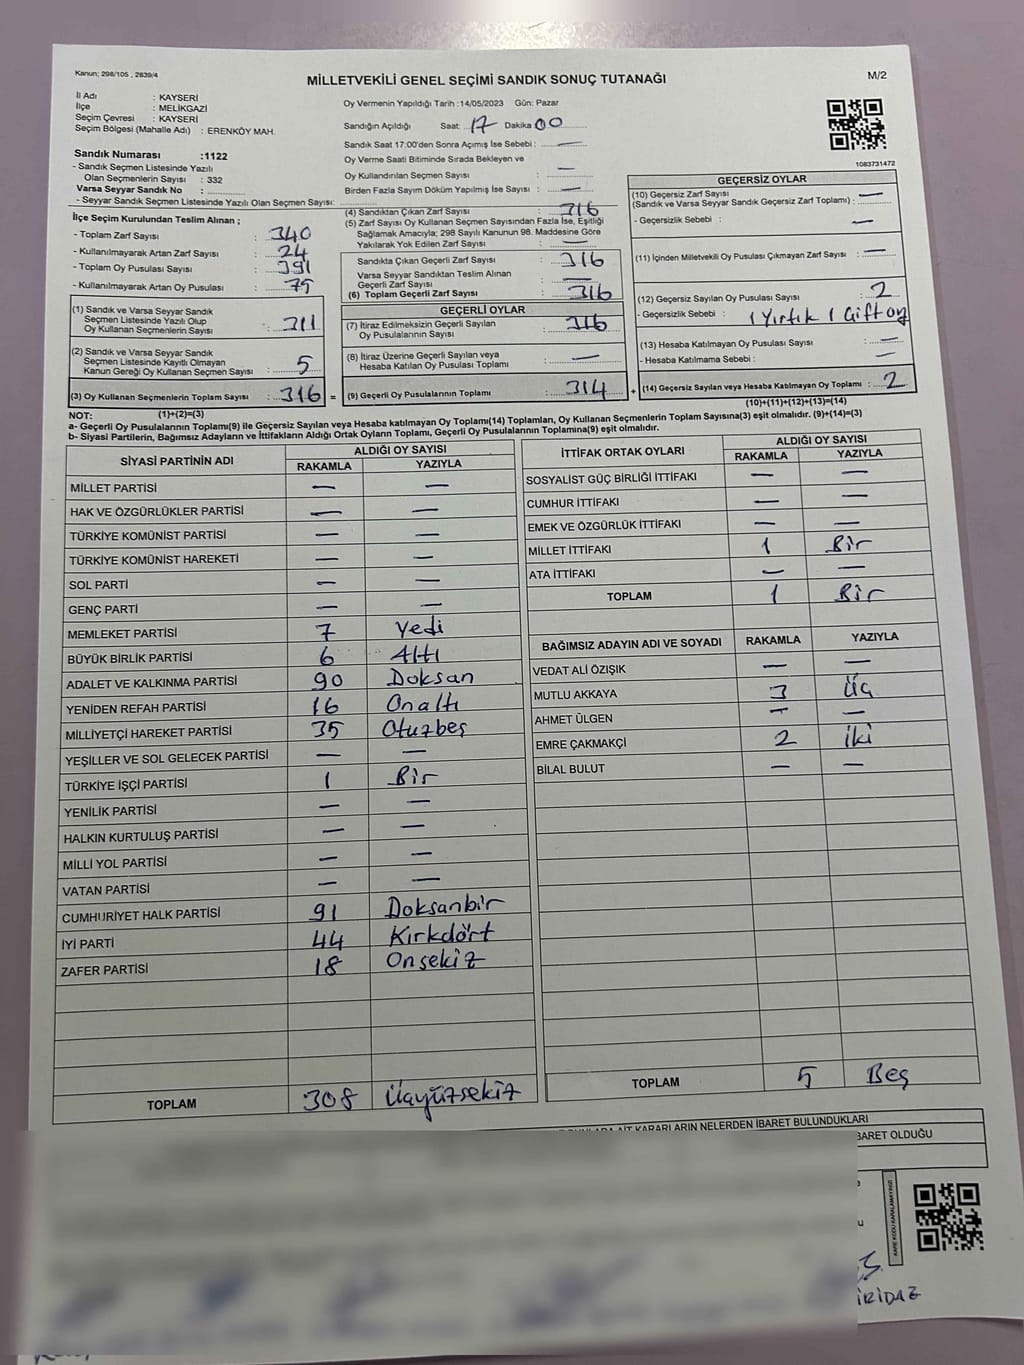 Kanun: 298/105 , 2839/4
MİLLETVEKİLİ GENEL SEÇİMİ SANDIK SONUÇ TUTANAĞI
M/2
İl Adı : KAYSERİ
İlçe : MELİKGAZİ
Seçim Çevresi : KAYSERİ
Seçim Bölgesi (Mahalle Adı) : ERENKÖY MAH.
Sandık Numarası :1122
- Sandık Seçmen Listesinde Yazılı
Olan Seçmenlerin Sayısı : 332
Varsa Seyyar Sandık No :
- Seyyar Sandık Seçmen Listesinde Yazılı Olan Seçmen Sayısı:
Oy Vermenin Yapıldığı Tarih :14/05/2023 Gün: Pazar
Sandığın Açıldığı Saat: 17 Dakika 00
Sandık Saat 17:00'den Sonra Açımış İse Sebebi : —
Oy Verme Saati Bitiminde Sırada Bekleyen ve
Oy Kullandırılan Seçmen Sayısı : —
Birden Fazla Sayım Döküm Yapılmış İse Sayısı : —
1083731472
İlçe Seçim Kurulundan Teslim Alınan ;
- Toplam Zarf Sayısı : 340
- Kullanılmayarak Artan Zarf Sayısı : 24
- Toplam Oy Pusulası Sayısı : 391
- Kullanılmayarak Artan Oy Pusulası : 75
(1) Sandık ve Varsa Seyyar Sandık
Seçmen Listesinde Yazılı Olup
Oy Kullanan Seçmenlerin Sayısı : 311
(2) Sandık ve Varsa Seyyar Sandık
Seçmen Listesinde Kayıtlı Olmayan
Kanun Gereği Oy Kullanan Seçmen Sayısı : 5
(3) Oy Kullanan Seçmenlerin Toplam Sayısı : 316 =
(4) Sandıktan Çıkan Zarf Sayısı : 316
(5) Zarf Sayısı Oy Kullanan Seçmen Sayısından Fazla İse, Eşitliği
Sağlamak Amacıyla; 298 Sayılı Kanunun 98. Maddesine Göre
Yakılarak Yok Edilen Zarf Sayısı : —
Sandıkta Çıkan Geçerli Zarf Sayısı : 316
Varsa Seyyar Sandıktan Teslim Alınan
Geçerli Zarf Sayısı : —
(6) Toplam Geçerli Zarf Sayısı : 316
GEÇERLİ OYLAR
(7) İtiraz Edilmeksizin Geçerli Sayılan
Oy Pusulalarının Sayısı : 316
(8) İtiraz Üzerine Geçerli Sayılan veya
Hesaba Katılan Oy Pusulası Toplamı : —
(9) Geçerli Oy Pusulalarının Toplamı : 314 +
GEÇERSİZ OYLAR
(10) Geçersiz Zarf Sayısı
(Sandık ve Varsa Seyyar Sandık Geçersiz Zarf Toplamı) : —
- Geçersizlik Sebebi : —
(11) İçinden Milletvekili Oy Pusulası Çıkmayan Zarf Sayısı : —
(12) Geçersiz Sayılan Oy Pusulası Sayısı : 2
- Geçersizlik Sebebi : 1 Yırtık 1 Çift oy
(13) Hesaba Katılmayan Oy Pusulası Sayısı : —
- Hesaba Katılmama Sebebi : —
(14) Geçersiz Sayılan veya Hesaba Katılmayan Oy Toplamı : 2
NOT: (1)+(2)=(3) (10)+(11)+(12)+(13)=(14)
a- Geçerli Oy Pusulalarının Toplamı(9) ile Geçersiz Sayılan veya Hesaba katılmayan Oy Toplamı(14) Toplamları, Oy Kullanan Seçmenlerin Toplam Sayısına(3) eşit olmalıdır. (9)+(14)=(3)
b- Siyasi Partilerin, Bağımsız Adayların ve İttifakların Aldığı Ortak Oyların Toplamı, Geçerli Oy Pusulalarının Toplamına(9) eşit olmalıdır.
SİYASİ PARTİNİN ADI ALDIĞI OY SAYISI
RAKAMLA YAZIYLA
MİLLET PARTİSİ — —
HAK VE ÖZGÜRLÜKLER PARTİSİ — —
TÜRKİYE KOMÜNİST PARTİSİ — —
TÜRKİYE KOMÜNİST HAREKETİ — —
SOL PARTİ — —
GENÇ PARTİ — —
MEMLEKET PARTİSİ 7 Yedi
BÜYÜK BİRLİK PARTİSİ 6 Altı
ADALET VE KALKINMA PARTİSİ 90 Doksan
YENİDEN REFAH PARTİSİ 16 Onaltı
MİLLİYETÇİ HAREKET PARTİSİ 35 Otuzbeş
YEŞİLLER VE SOL GELECEK PARTİSİ — —
TÜRKİYE İŞÇİ PARTİSİ 1 Bir
YENİLİK PARTİSİ — —
HALKIN KURTULUŞ PARTİSİ — —
MİLLİ YOL PARTİSİ — —
VATAN PARTİSİ — —
CUMHURİYET HALK PARTİSİ 91 Doksanbir
İYİ PARTİ 44 Kırkdört
ZAFER PARTİSİ 18 Onsekiz
TOPLAM 308 Üçyüzsekiz
İTTİFAK ORTAK OYLARI ALDIĞI OY SAYISI
RAKAMLA YAZIYLA
SOSYALİST GÜÇ BİRLİĞİ İTTİFAKI — —
CUMHUR İTTİFAKI — —
EMEK VE ÖZGÜRLÜK İTTİFAKI — —
MİLLET İTTİFAKI 1 Bir
ATA İTTİFAKI — —
TOPLAM 1 Bir
BAĞIMSIZ ADAYIN ADI VE SOYADI RAKAMLA YAZIYLA
VEDAT ALİ ÖZIŞIK — —
MUTLU AKKAYA 3 Üç
AHMET ÜLGEN — —
EMRE ÇAKMAKÇİ 2 İki
BİLAL BULUT — —
TOPLAM 5 Beş
AİT KARARLARIN NELERDEN İBARET BULUNDUKLARI
BARET OLDUĞU
KARE KODU KARALAMAYINIZ!